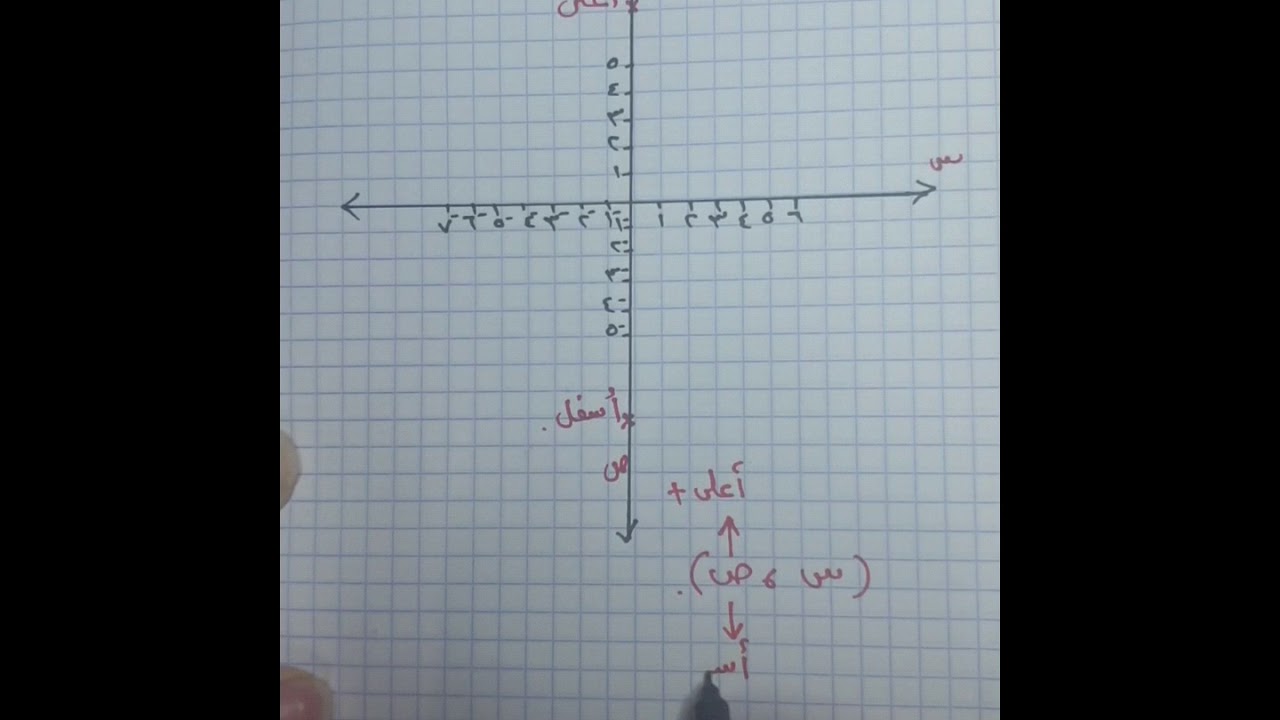 أعلى
٥
٤
٣
٢
١
س
-٧ -٦ -٥ -٤ -٣ -٢ -١ ١ ٢ ٣ ٤ ٥ ٦
-١
-٢
-٣
-٤
-٥
أسفل.
ص
أعلى +
(س ، ص).
أسـ